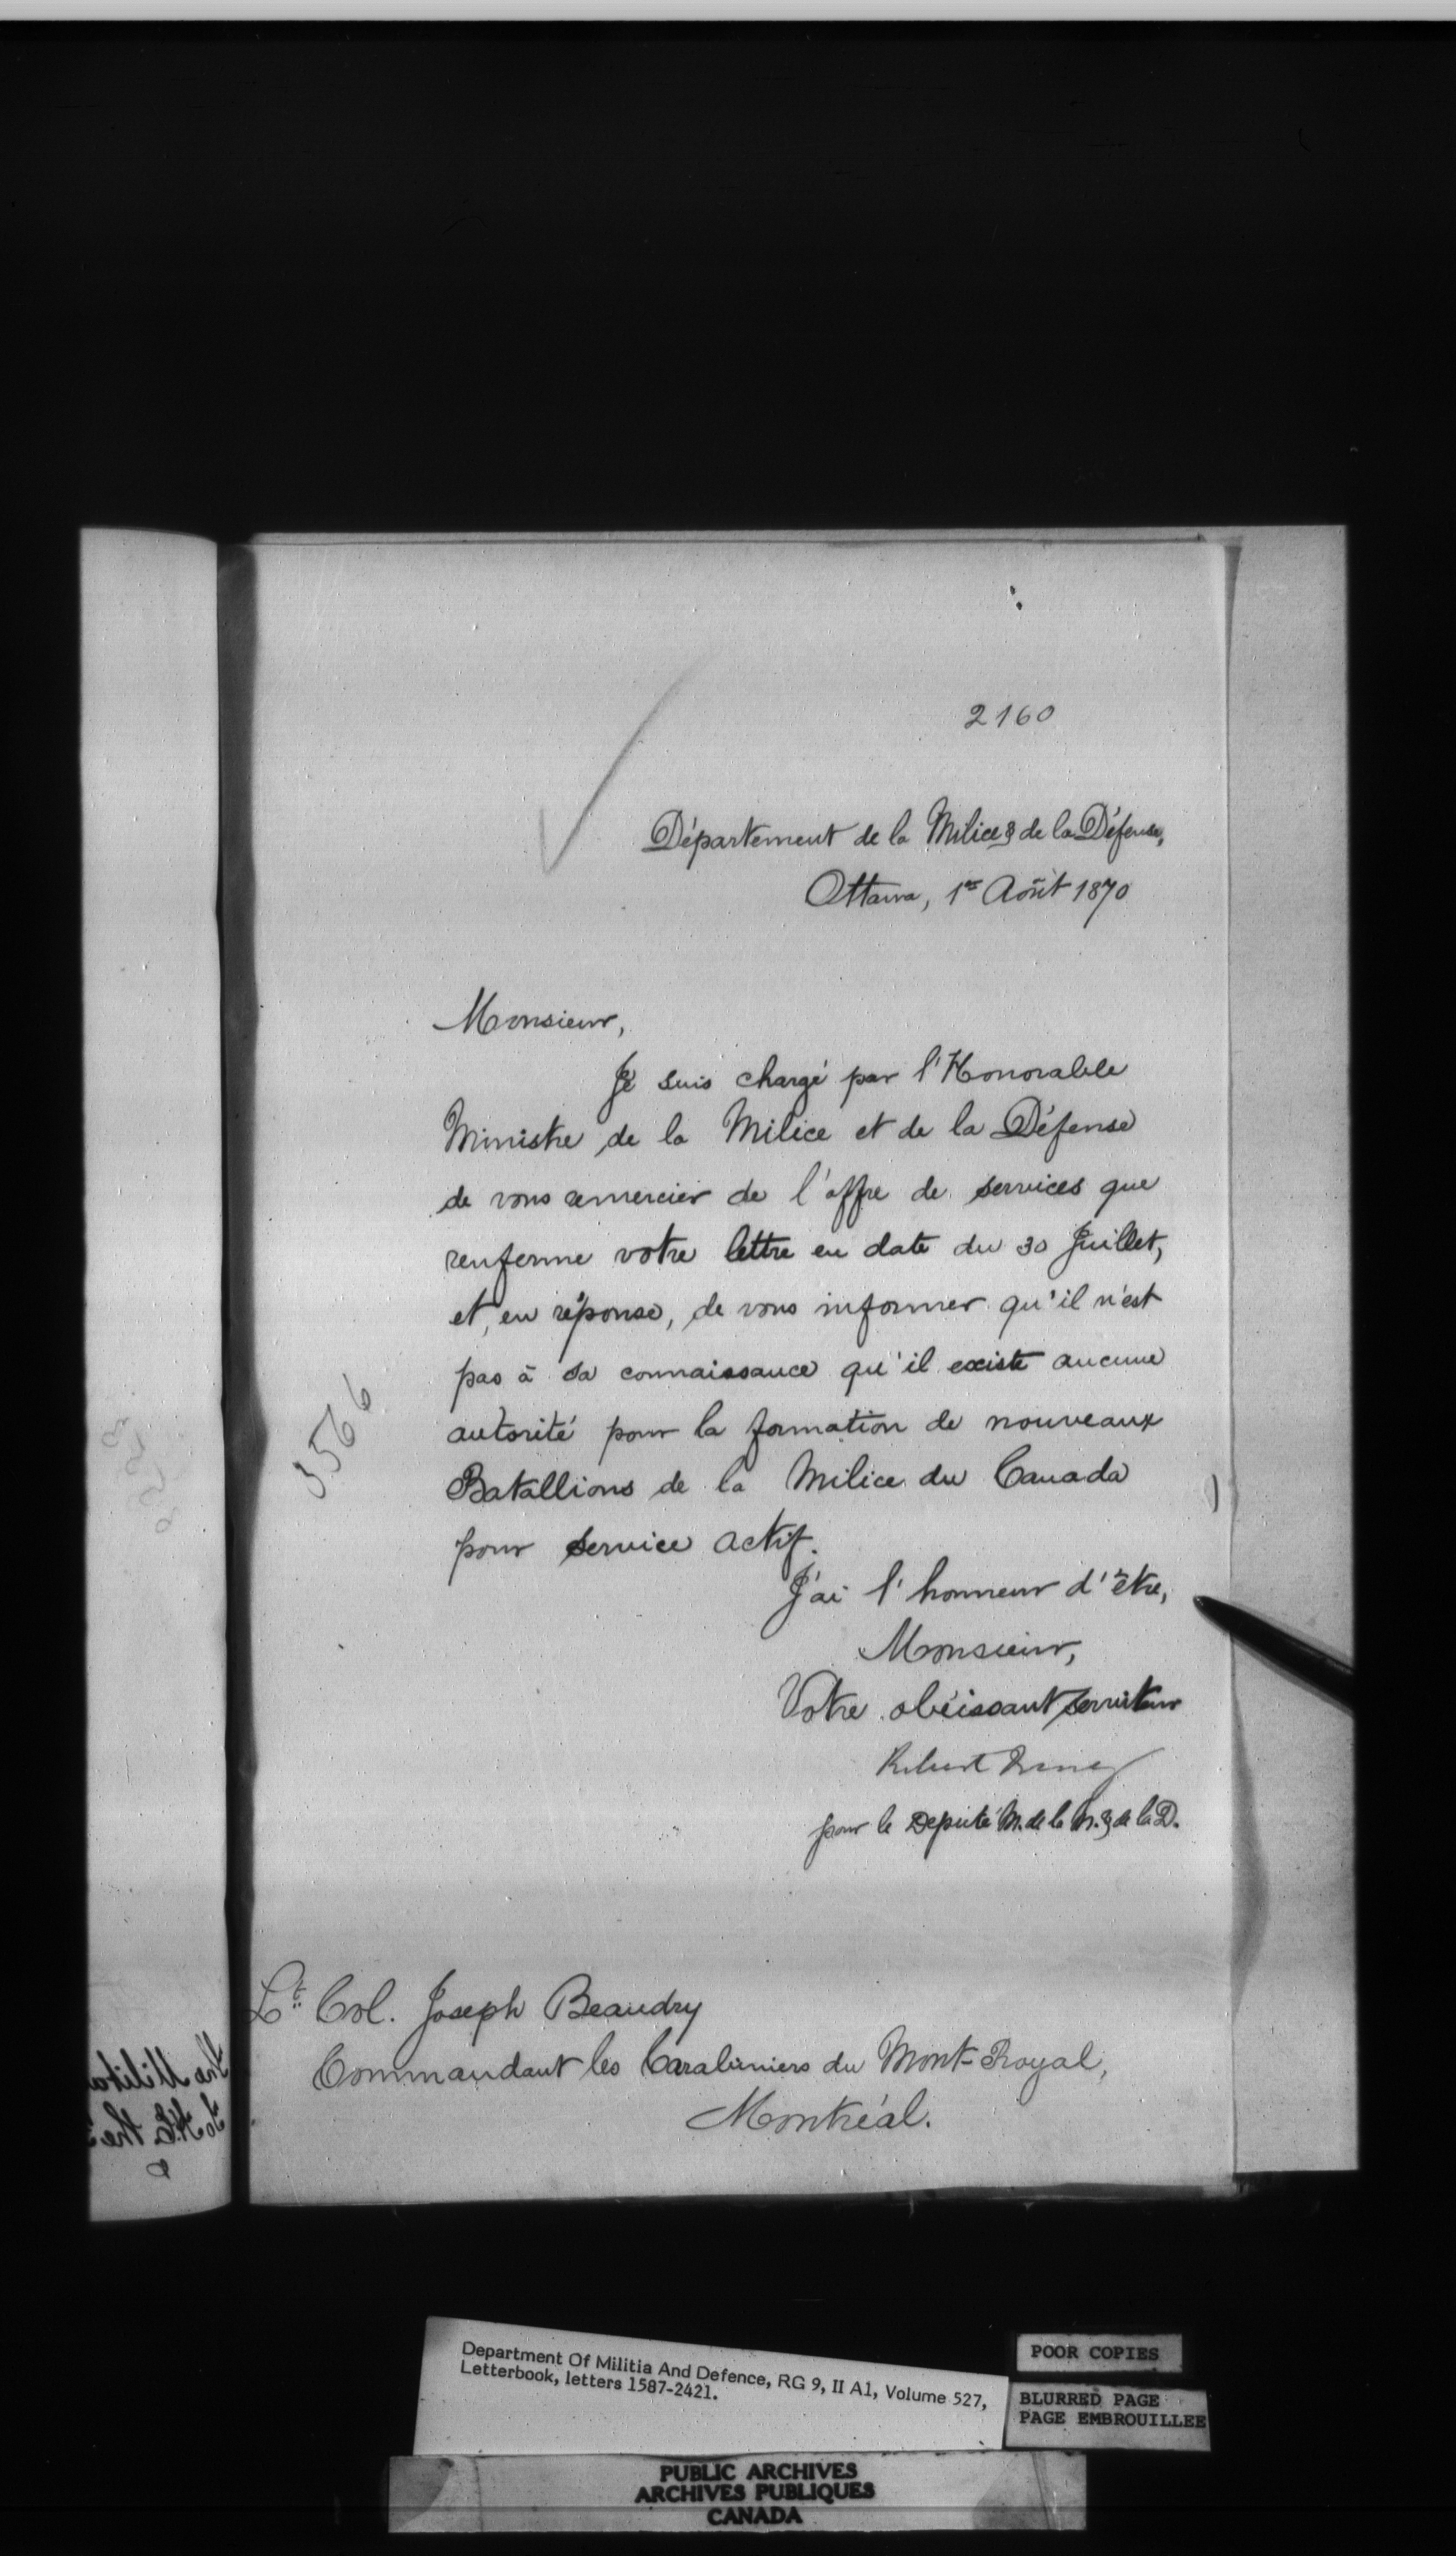 2160
Département de la Milice & de la Défense,
Ottawa, 1er Août 1870
Monsieur,
Je suis chargé par l'Honorable
Ministre de la Milice et de la Défense
de vous remercier de l'offre de services que
renferme votre lettre en date du 30 Juillet,
et, en réponse, de vous informer qu'il n'est
pas à sa connaissance qu'il existe aucune
autorité pour la formation de nouveaux
Batallions de la Milice du Canada
pour service actif.
J'ai l'honneur d'être,
Monsieur,
Votre obéissant serviteur
Robert
pour le Deputé M. de la M. & de la D.
Lt. Col. Joseph Beaudry
Commandant les Carabiniers du Mont-Royal,
Montréal.
Department Of Militia And Defence, RG 9, II A1, Volume 527,
Letterbook, letters 1587-2421.
POOR COPIES
BLURRED PAGE
PAGE EMBROUILLEE
PUBLIC ARCHIVES
ARCHIVES PUBLIQUES
CANADA